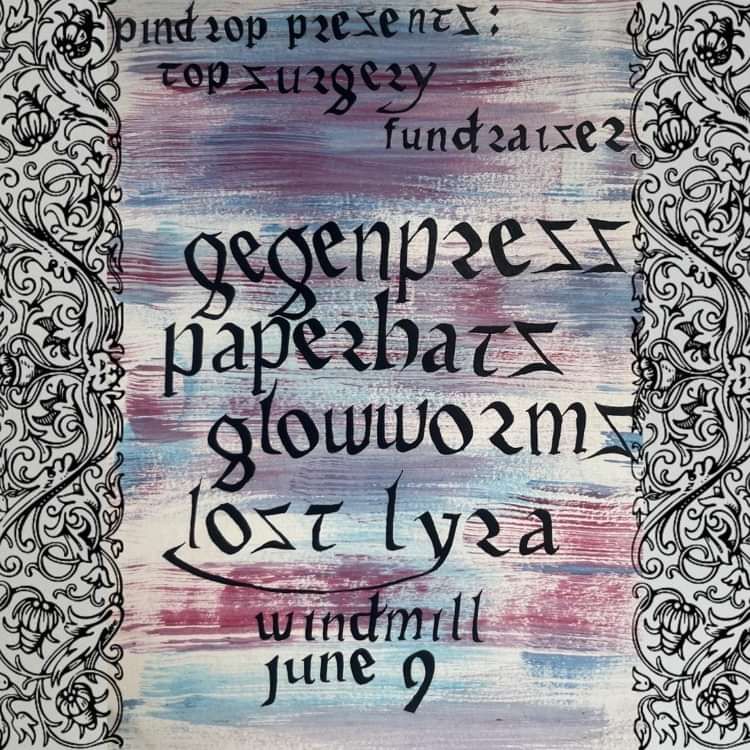 pindrop presents:
top surgery
fundraiser
gegenpress
paperhats
glowworms
lost lyra
windmill
june 9